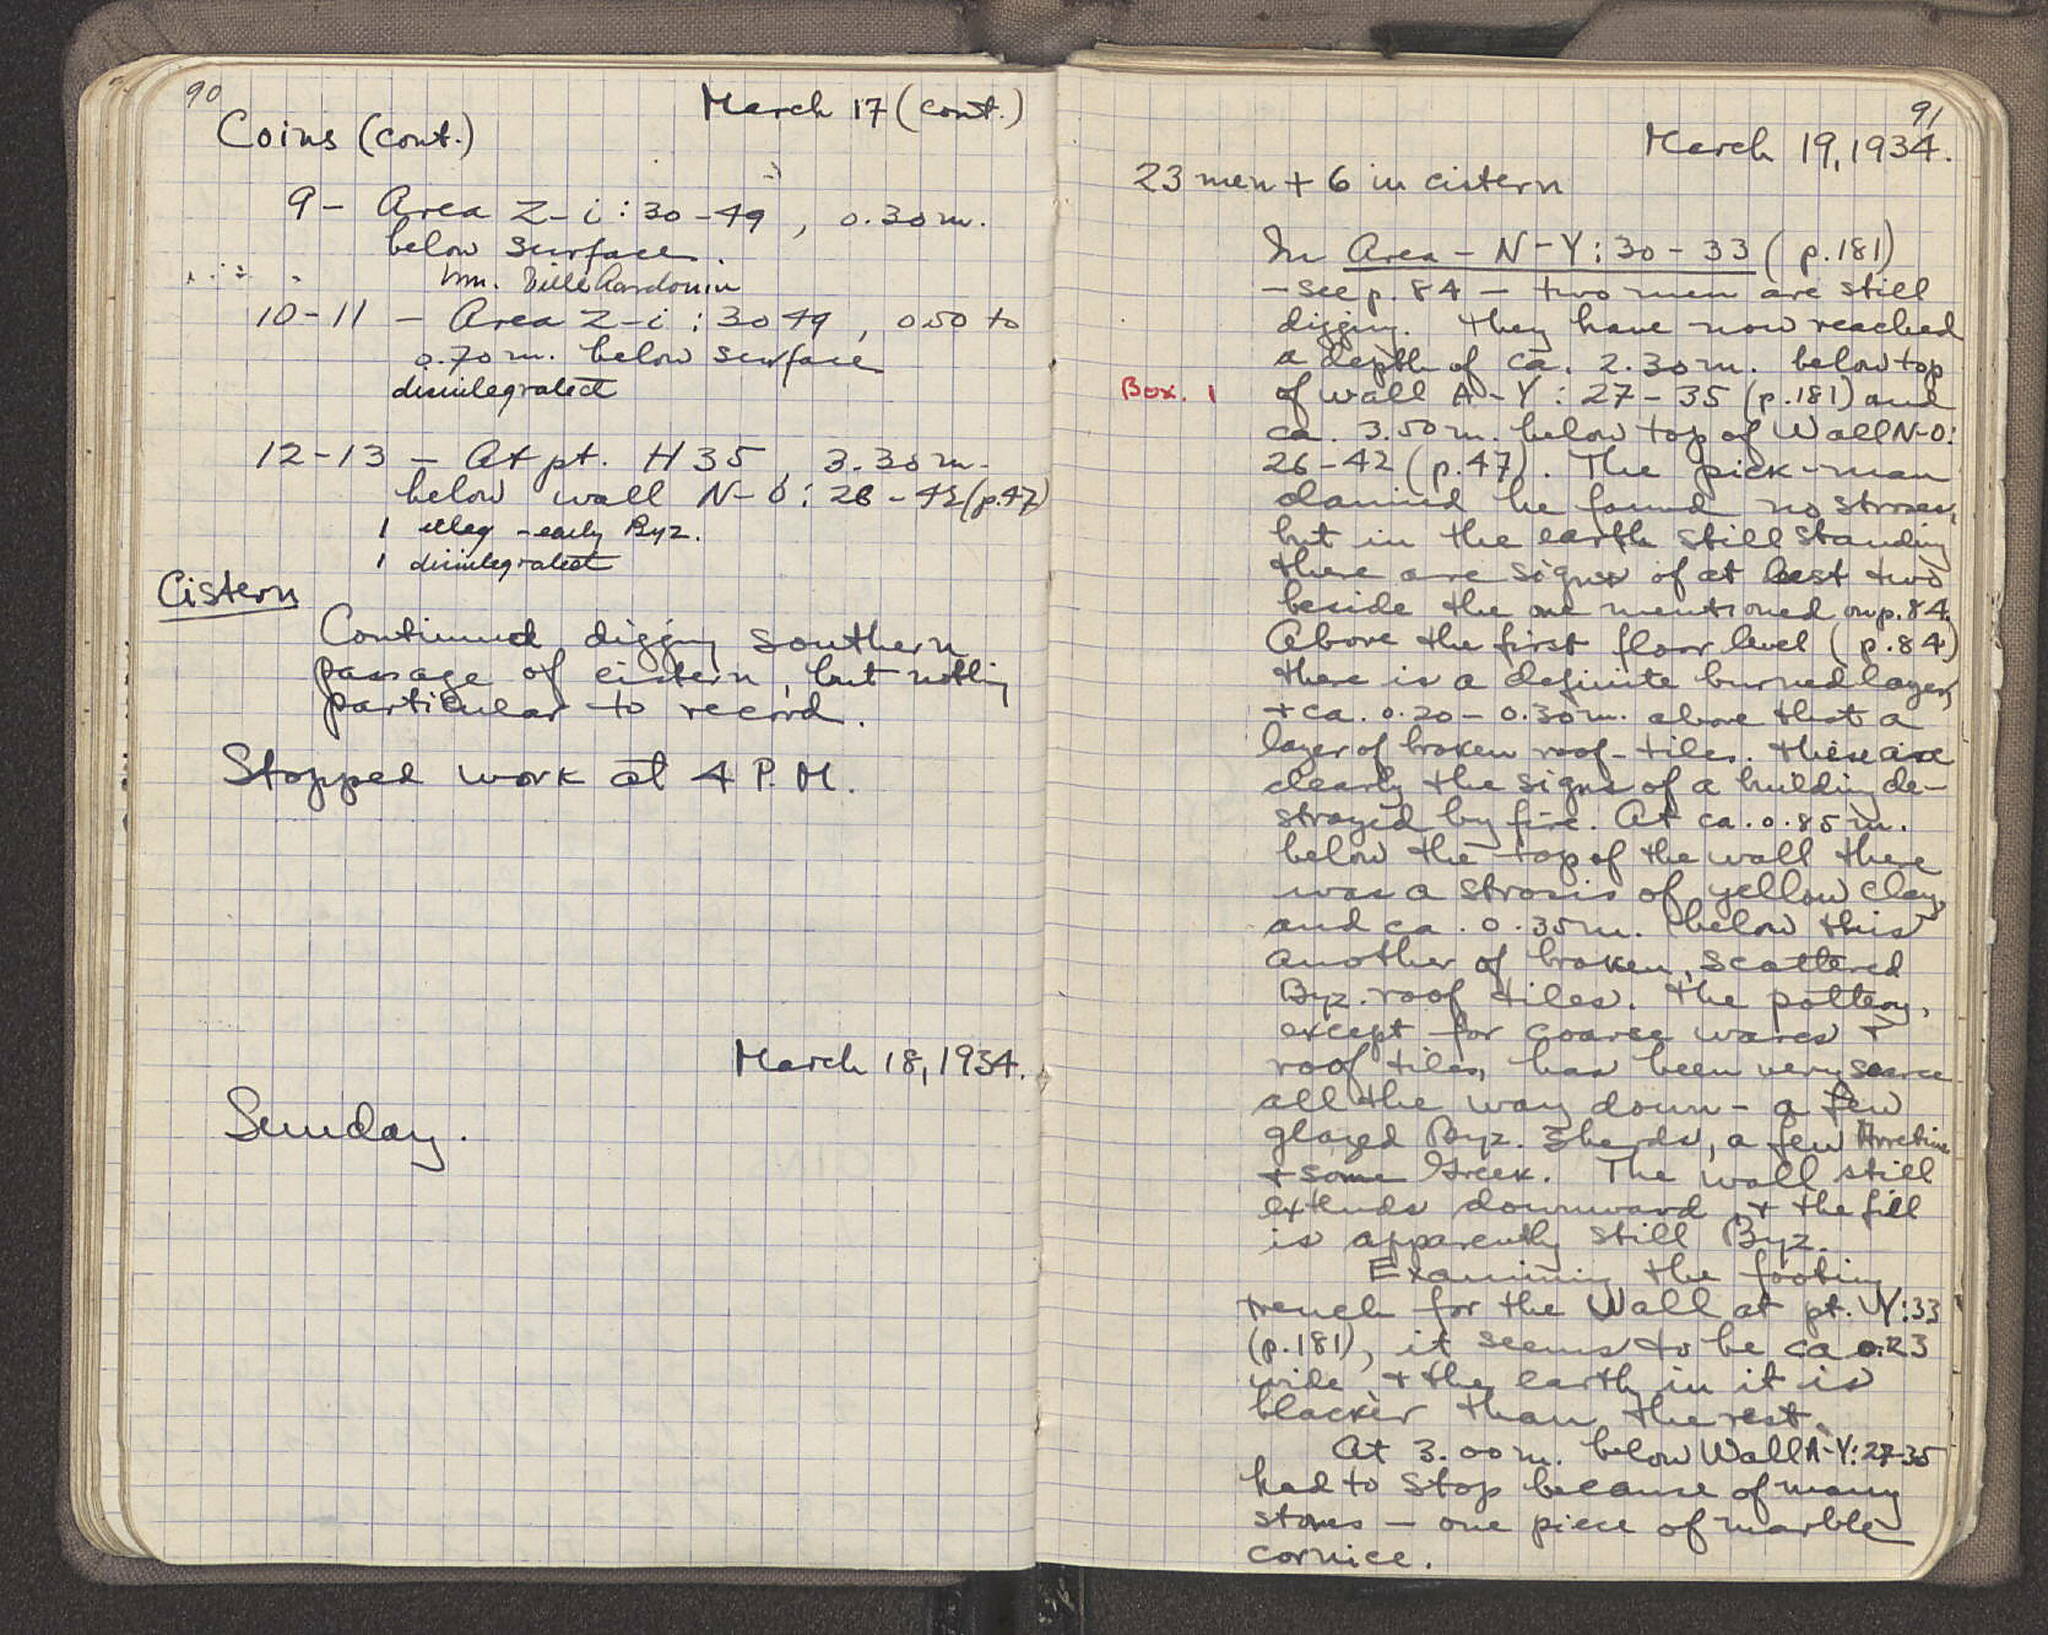 90
March 17 (cont.)
Coins (cont.)
9 - Area Z-i : 30-49, 0.30 m.
below surface.
Wm. Villehardouin
10-11 - Area Z-i : 30 49, 0.50 to
0.70 m. below surface
disintegrated
12-13 - At pt. H 35, 3.30 m.
below wall N-O : 26-42 (p.47)
1 illeg - early Byz.
1 disintegrated
Cistern
Continued digging southern
passage of cistern, but nothing
particular to record.
Stopped work at 4 P.M.
March 18, 1934.
Sunday.
91
March 19, 1934.
23 men + 6 in cistern
In Area - N-Y : 30-33 (p.181)
- see p. 84 - two men are still
digging. They have now reached
a depth of ca. 2.30 m. below top
Box. 1
of wall A-Y : 27-35 (p.181) and
ca. 3.50 m. below top of Wall N-O:
26-42 (p.47). The pick-man
claimed he found no stroses,
but in the earth still standing
there are signs of at least two
beside the one mentioned on p.84.
Above the first floor level (p.84)
there is a definite burned layer,
+ ca. 0.20 - 0.30 m. above that a
layer of broken roof-tiles. These are
clearly the signs of a building de-
stroyed by fire. At ca. 0.85 m.
below the top of the wall there
was a strosis of yellow clay,
and ca. 0.35 m. below this
another of broken, scattered
Byz. roof tiles. The pottery,
except for coarse wares +
roof tiles, has been very scarce
all the way down - a few
glazed Byz. sherds, a few Arretine
+ some Greek. The wall still
extends downward, + the fill
is apparently still Byz.
Examining the footing
trench for the Wall at pt. Y:33
(p.181), it seems to be ca 0.23
wide, + the earth in it is
blacker than the rest.
At 3.00 m. below Wall A-Y: 27-35
had to stop because of many
stones - one piece of marble
cornice.